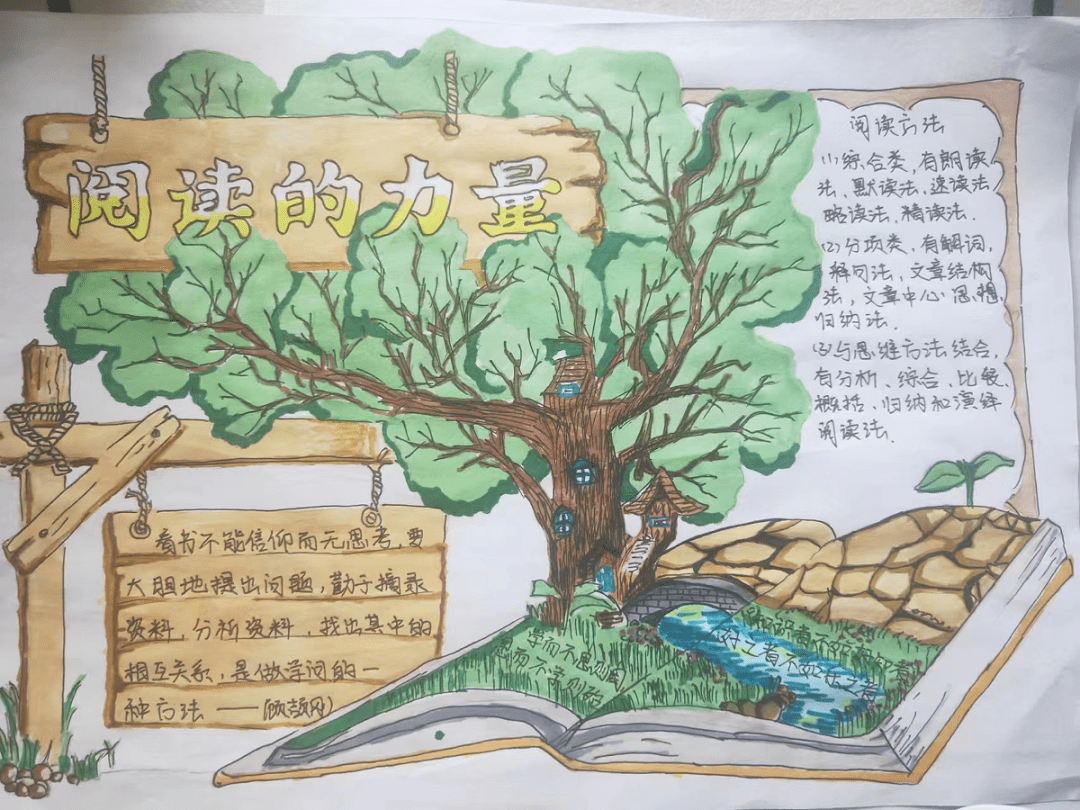 阅读的力量
阅读方法
(1)综合类,有朗读
法、默读法、速读法、
略读法、精读法.
(2)分项类,有解词,
释句法,文章结构
法,文章中心思想
归纳法.
(3)与思维方法结合,
有分析、综合、比较、
概括、归纳和演绎
阅读法.
看书不能信仰而无思考,要
大胆地提出问题,勤于摘录
资料,分析资料,找出其中的
相互关系,是做学问的一
种方法 ——(顾颉刚)
学而不思则罔
思而不学则殆
知之者不如好之者
好之者不如乐之者